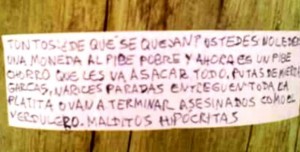 TONTOS ¿DE QUÉ SE QUEJAN? USTEDES NO LE DES
UNA MONEDA AL PIBE POBRE Y AHORA ES UN PIBE
CHORRO QUE LES VA A SACAR TODO. PUTAS DE
GARCAS, NARICES PARADAS ENTREGUEN TODA LA
PLATITA O VAN A TERMINAR ASESINADOS COMO EL
VERDULERO. MALDITOS HIPOCRITAS